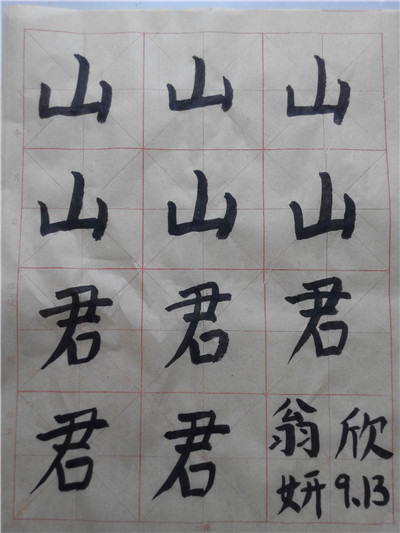 山山山
山山山
君君君
君君翁欣
妍9.13